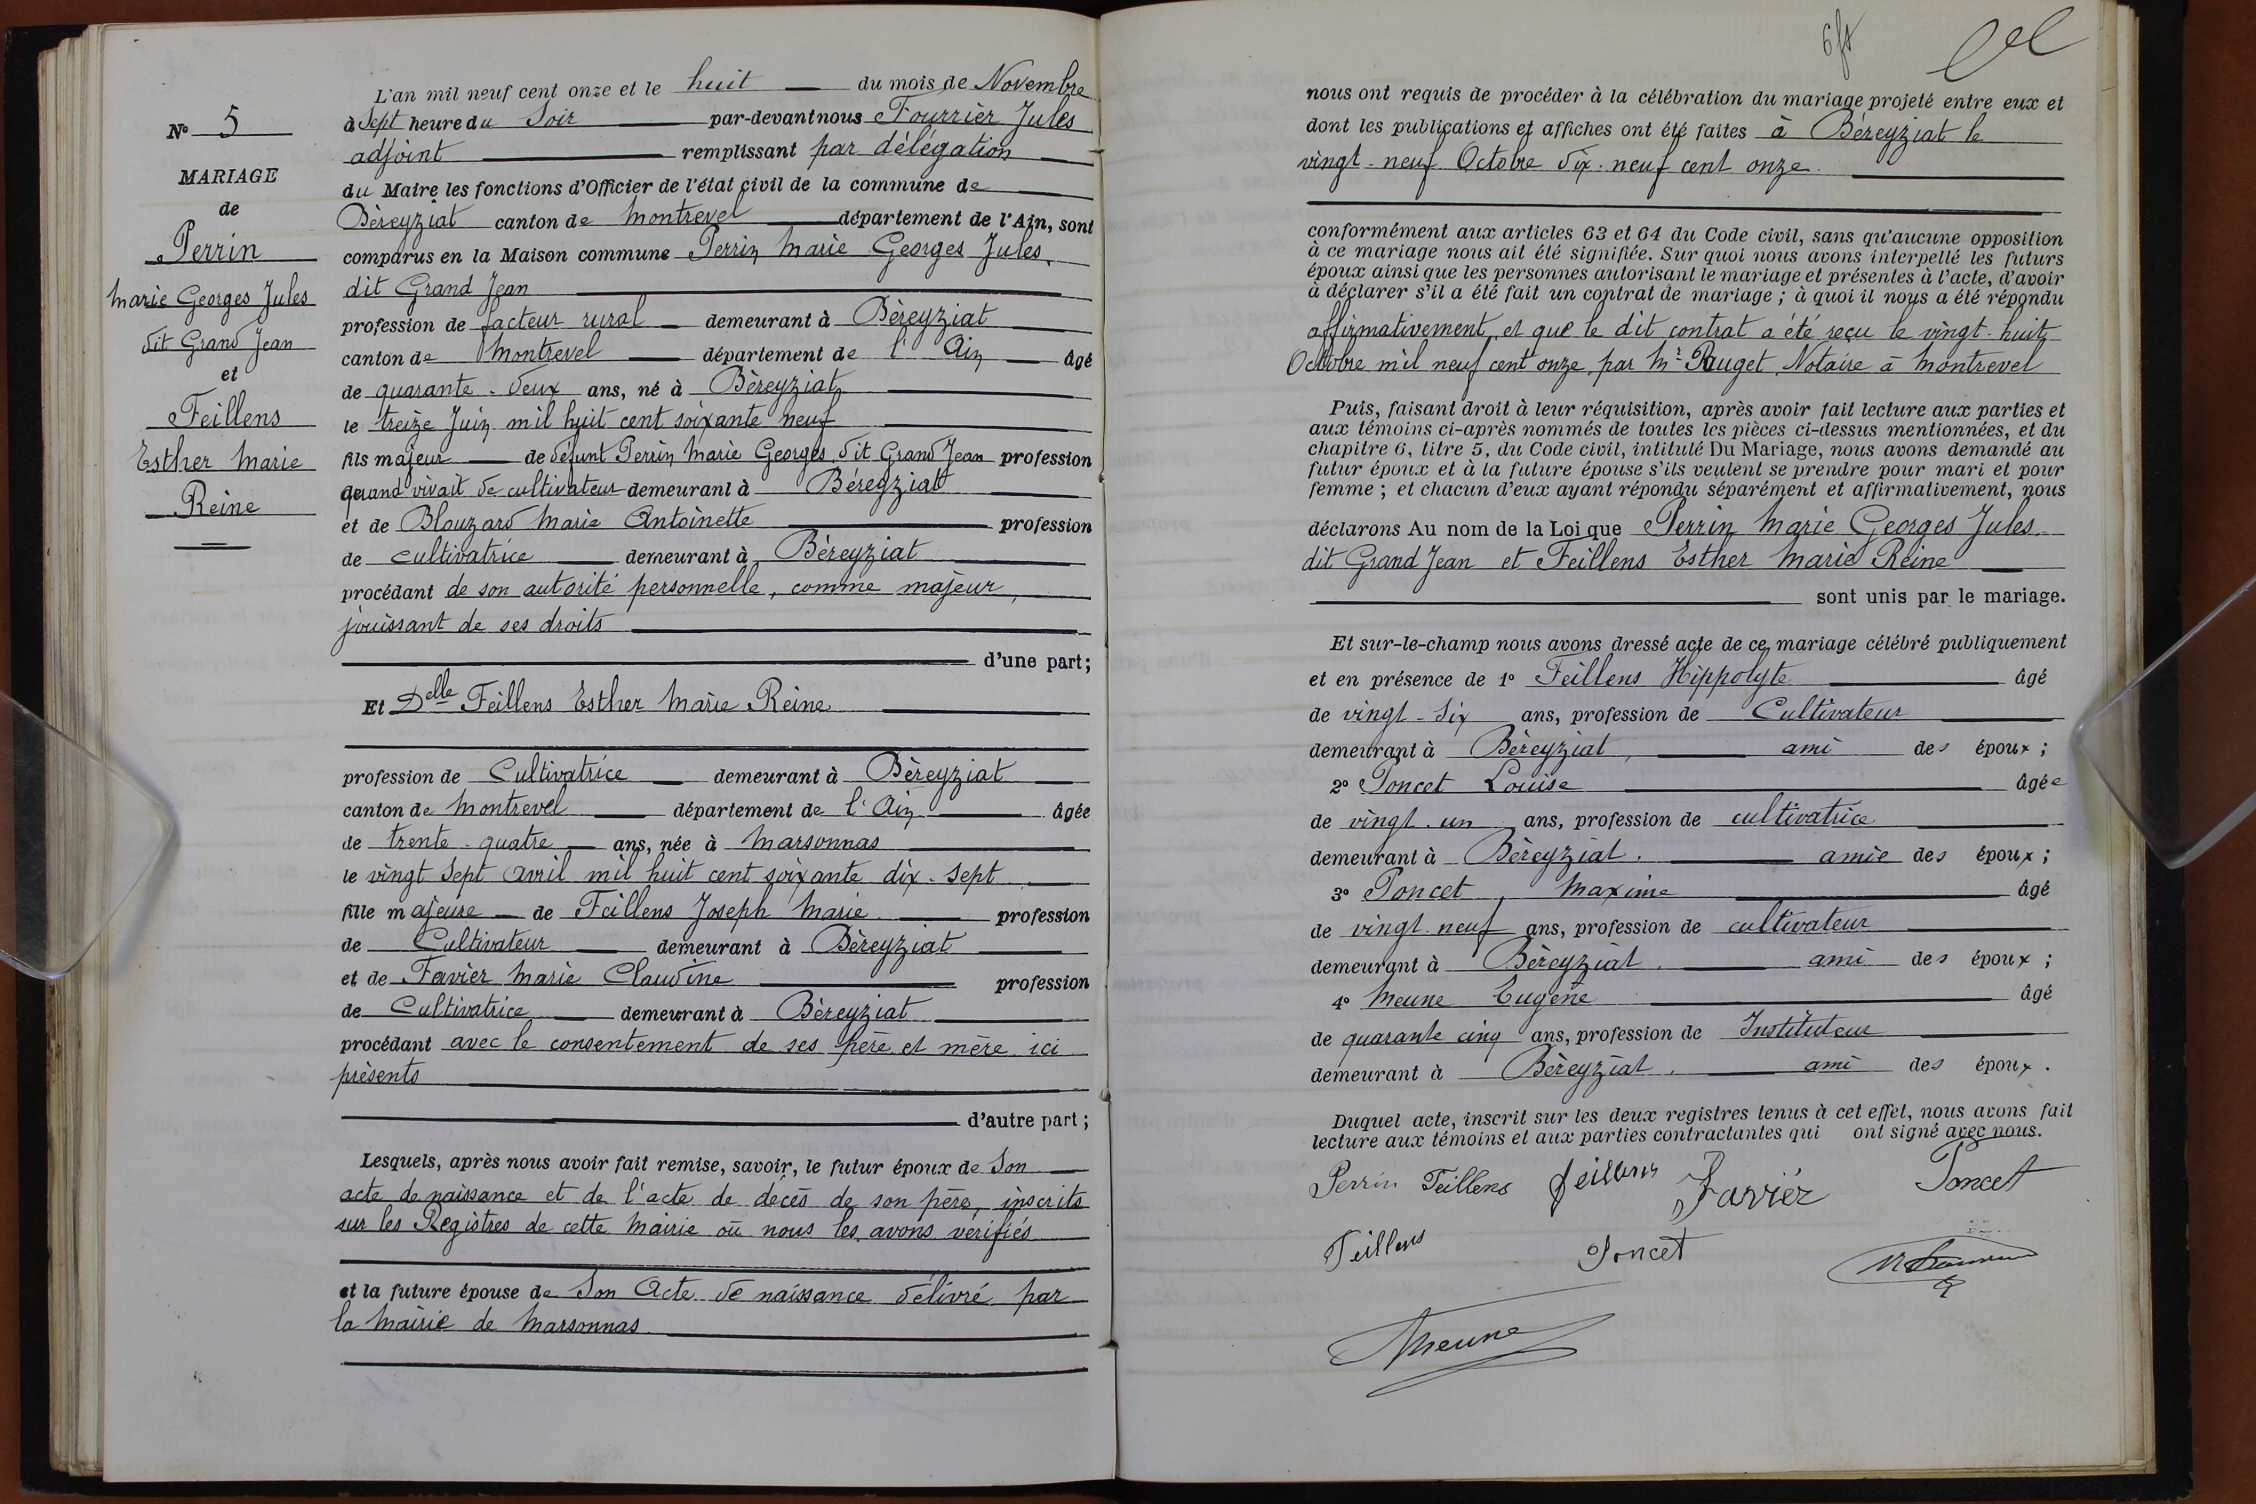 N° 5
MARIAGE
de
Perrin
Marie Georges Jules
dit Grand Jean
et
Feillens
Esther Marie
Reine
L'an mil neuf cent onze et le huit du mois de Novembre
à Sept heure du Soir par-devant nous Fourrier Jules
adjoint remplissant par délégation
du Maire les fonctions d'Officier de l'état civil de la commune de
Béreyziat canton de Montrevel département de l'Ain, sont
comparus en la Maison commune Perrin Marie Georges Jules,
dit Grand Jean
profession de facteur rural demeurant à Béreyziat
canton de Montrevel département de l'Ain âgé
de quarante-deux ans, né à Béreyziat
le treize Juin mil huit cent soixante neuf
fils majeur de défunt Perrin Marie Georges, dit Grand Jean profession
quand vivait de cultivateur demeurant à Béreyziat
et de Blouzard Marie Antoinette profession
de cultivatrice demeurant à Béreyziat
procédant de son autorité personnelle, comme majeur,
jouissant de ses droits
d'une part;
Et Delle Feillens Esther Marie Reine
profession de Cultivatrice demeurant à Béreyziat
canton de Montrevel département de l'Ain âgée
de trente-quatre ans, née à Marsonnas
le vingt Sept Avril mil huit cent soixante dix-sept
fille majeure de Feillens Joseph Marie profession
de Cultivateur demeurant à Béreyziat
et de Favier Marie Claudine profession
de Cultivatrice demeurant à Béreyziat
procédant avec le consentement de ses père et mère ici
présents
d'autre part;
Lesquels, après nous avoir fait remise, savoir, le futur époux de Son
acte de naissance et de l'acte de décès de son père, inscrits
sur les Registres de cette Mairie où nous les avons vérifiés
et la future épouse de Son Acte de naissance délivré par
la Mairie de Marsonnas
nous ont requis de procéder à la célébration du mariage projeté entre eux et
dont les publications et affiches ont été faites à Béreyziat le
vingt-neuf Octobre dix-neuf cent onze
conformément aux articles 63 et 64 du Code civil, sans qu'aucune opposition
à ce mariage nous ait été signifiée. Sur quoi nous avons interpellé les futurs
époux ainsi que les personnes autorisant le mariage et présentes à l'acte, d'avoir
à déclarer s'il a été fait un contrat de mariage; à quoi il nous a été répondu
affirmativement, et que le dit contrat a été reçu le vingt-huit
Octobre mil neuf cent onze, par Mr Pauget, Notaire à Montrevel
Puis, faisant droit à leur réquisition, après avoir fait lecture aux parties et
aux témoins ci-après nommés de toutes les pièces ci-dessus mentionnées, et du
chapitre 6, titre 5, du Code civil, intitulé Du Mariage, nous avons demandé au
futur époux et à la future épouse s'ils veulent se prendre pour mari et pour
femme; et chacun d'eux ayant répondu séparément et affirmativement, nous
déclarons Au nom de la Loi que Perrin Marie Georges Jules
dit Grand Jean et Feillens Esther Marie Reine
sont unis par le mariage.
Et sur-le-champ nous avons dressé acte de ce mariage célébré publiquement
et en présence de 1° Feillens Hippolyte âgé
de vingt-six ans, profession de Cultivateur
demeurant à Béreyziat, ami des époux;
2° Poncet Louise âgée
de vingt-un ans, profession de cultivatrice
demeurant à Béreyziat. amie des époux;
3° Poncet, Maxime âgé
de vingt-neuf ans, profession de cultivateur
demeurant à Béreyziat. ami des époux;
4° Meune Eugène âgé
de quarante cinq ans, profession de Instituteur
demeurant à Béreyziat. ami des époux.
Duquel acte, inscrit sur les deux registres tenus à cet effet, nous avons fait
lecture aux témoins et aux parties contractantes qui ont signé avec nous.
Perrin Feillens Feillens Favier Poncet
Feillens Poncet
Meune